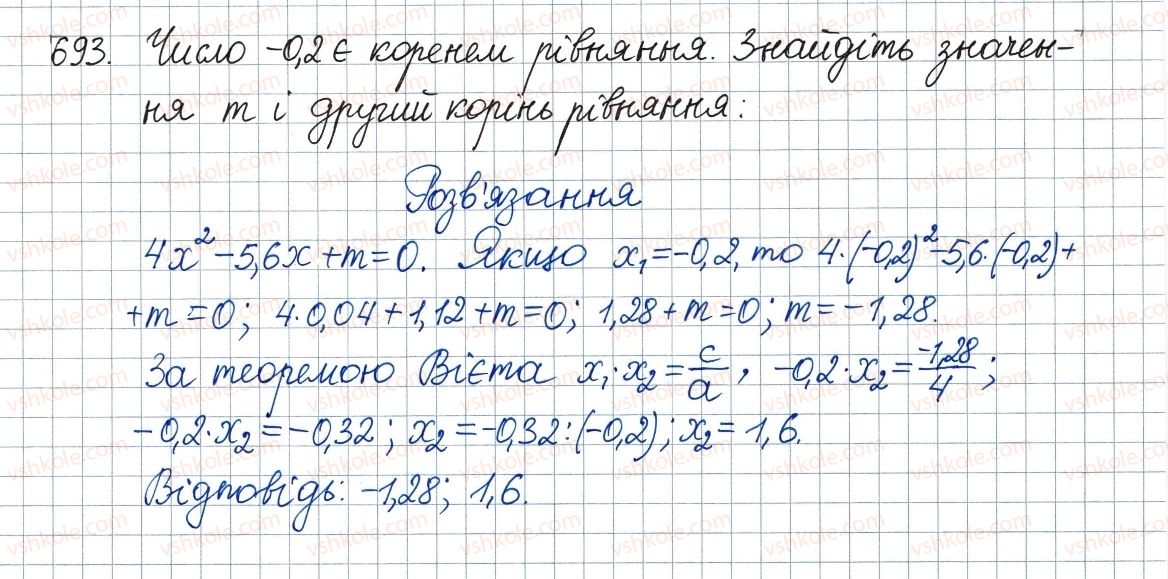 693. Число -0,2 є коренем рівняння. Знайдіть значен-
ня m і другий корінь рівняння:
Розв'язання
4x² - 5,6x + m = 0. Якщо x₁ = -0,2, то 4·(-0,2)² - 5,6·(-0,2) +
+ m = 0; 4·0,04 + 1,12 + m = 0; 1,28 + m = 0; m = -1,28.
За теоремою Вієта x₁·x₂ = c/a, -0,2·x₂ = -1,28/4;
-0,2·x₂ = -0,32; x₂ = -0,32:(-0,2); x₂ = 1,6.
Відповідь: -1,28; 1,6.